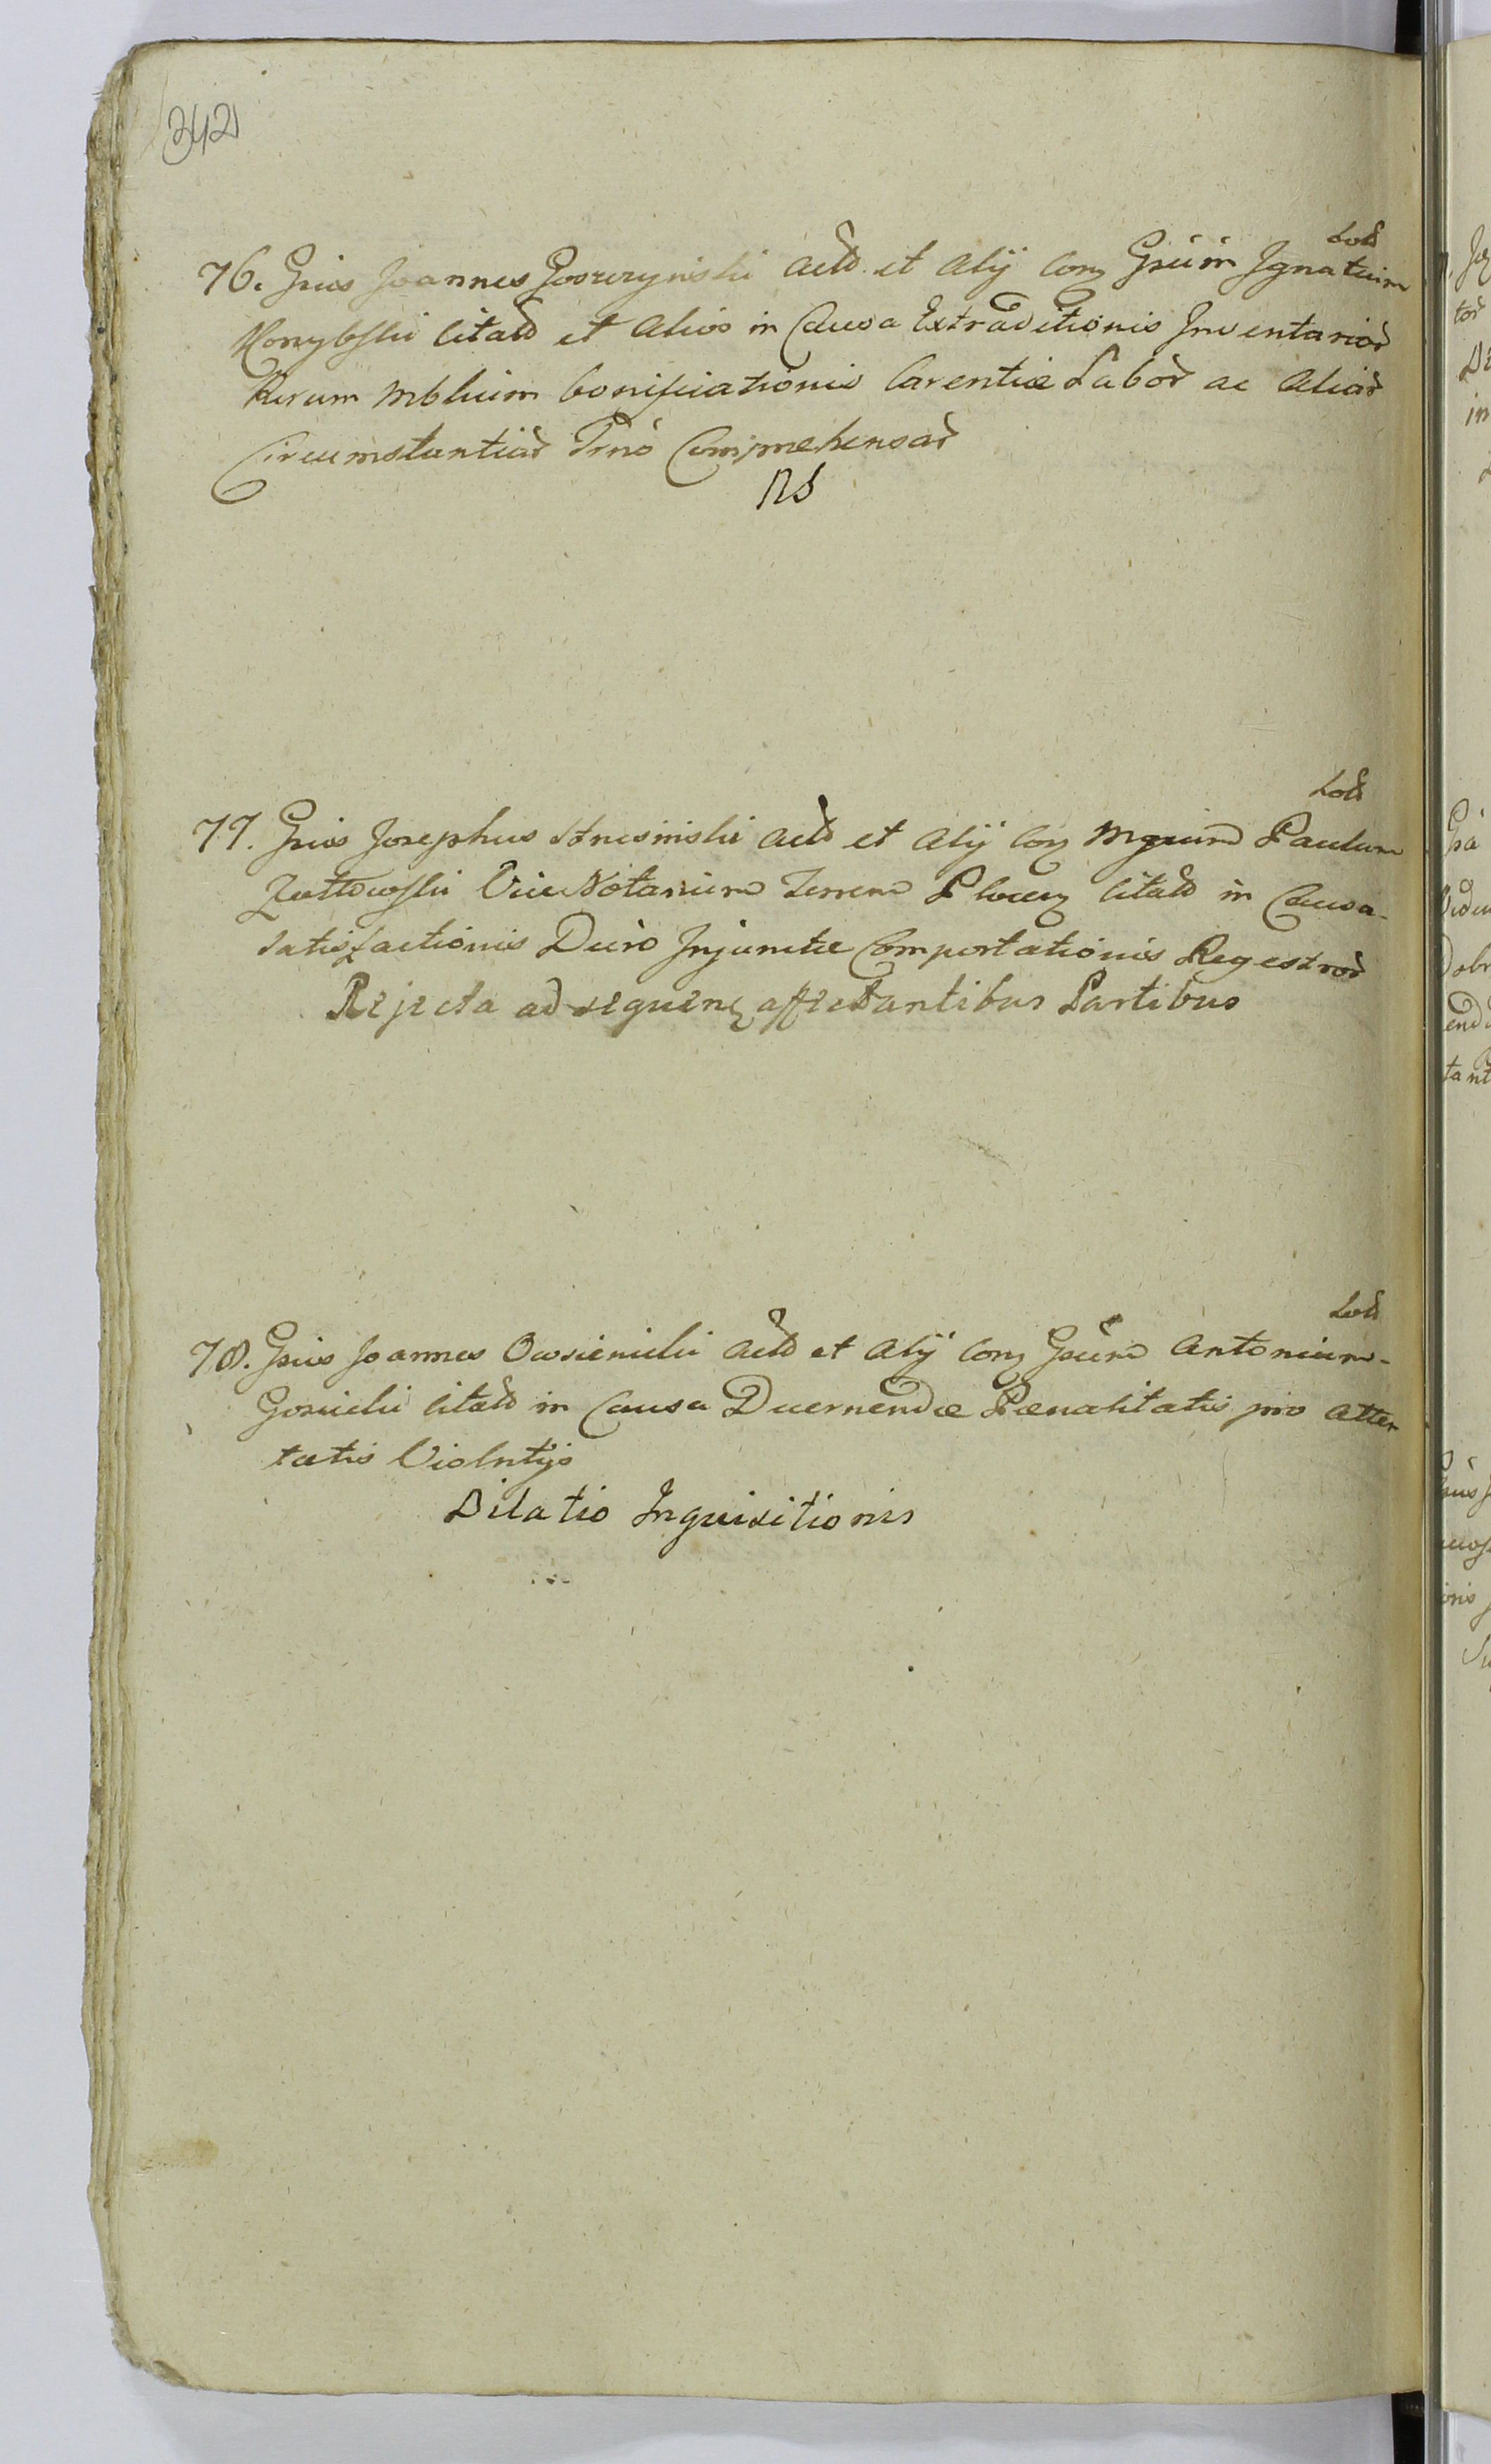 342
Lod
76. Gsus Joannes Goreczynski Actd et Alij Con Gsum Ignatium
citatd et Alios in Causa Extraditionis Inventariod
Rerum Mblium bonificationis Carentiæ Labod ac Aliad
Circumstantiad Pno Comprehensad
NS
Lod
77. Gsus Josephus Actd et Alij Con Mgum Paulum
Zuttowski ViceNotarium Terren Plocen citatd in Causa
Satisfactionis Decro Injunctæ Comportationis Regestrod
Rejecta ad sequen affectantibus Partibus
Lod
78. Gsus Joannes Owsienicki Actd et Alij Con Gsum Antonium
citatd in Causa Decernendæ Pænalitatis pro Atten
tatis Violntijs
Dilatio Inquisitionis